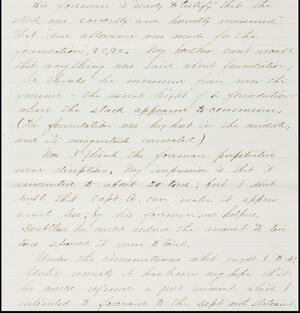 His foreman is "ready to testify" that the
stack was correctly and honestly measured,
that "due allowance was made for the
foundation," &c, &c. My brother can't recall
that anything was said about foundation,
he thinks he measured from near the
ground - the usual height of a foundation
where the stack appeared to commence.
(The foundation was highest in the middle,
and its magnitude concealed)
Now I think the foreman perpetrated
some deception. My impression is that it
amounted to about 20 tons; but I don't
doubt that Capt A. can make it appear
much less, by his foreman's help.
Doubtless he could reduce the amount to ten
tons should it come to trial.
Under the circumstances what ought I to do?
Until recently it has been my hope that
he would refund a just amount which I
intended to forward to the Dept with statement